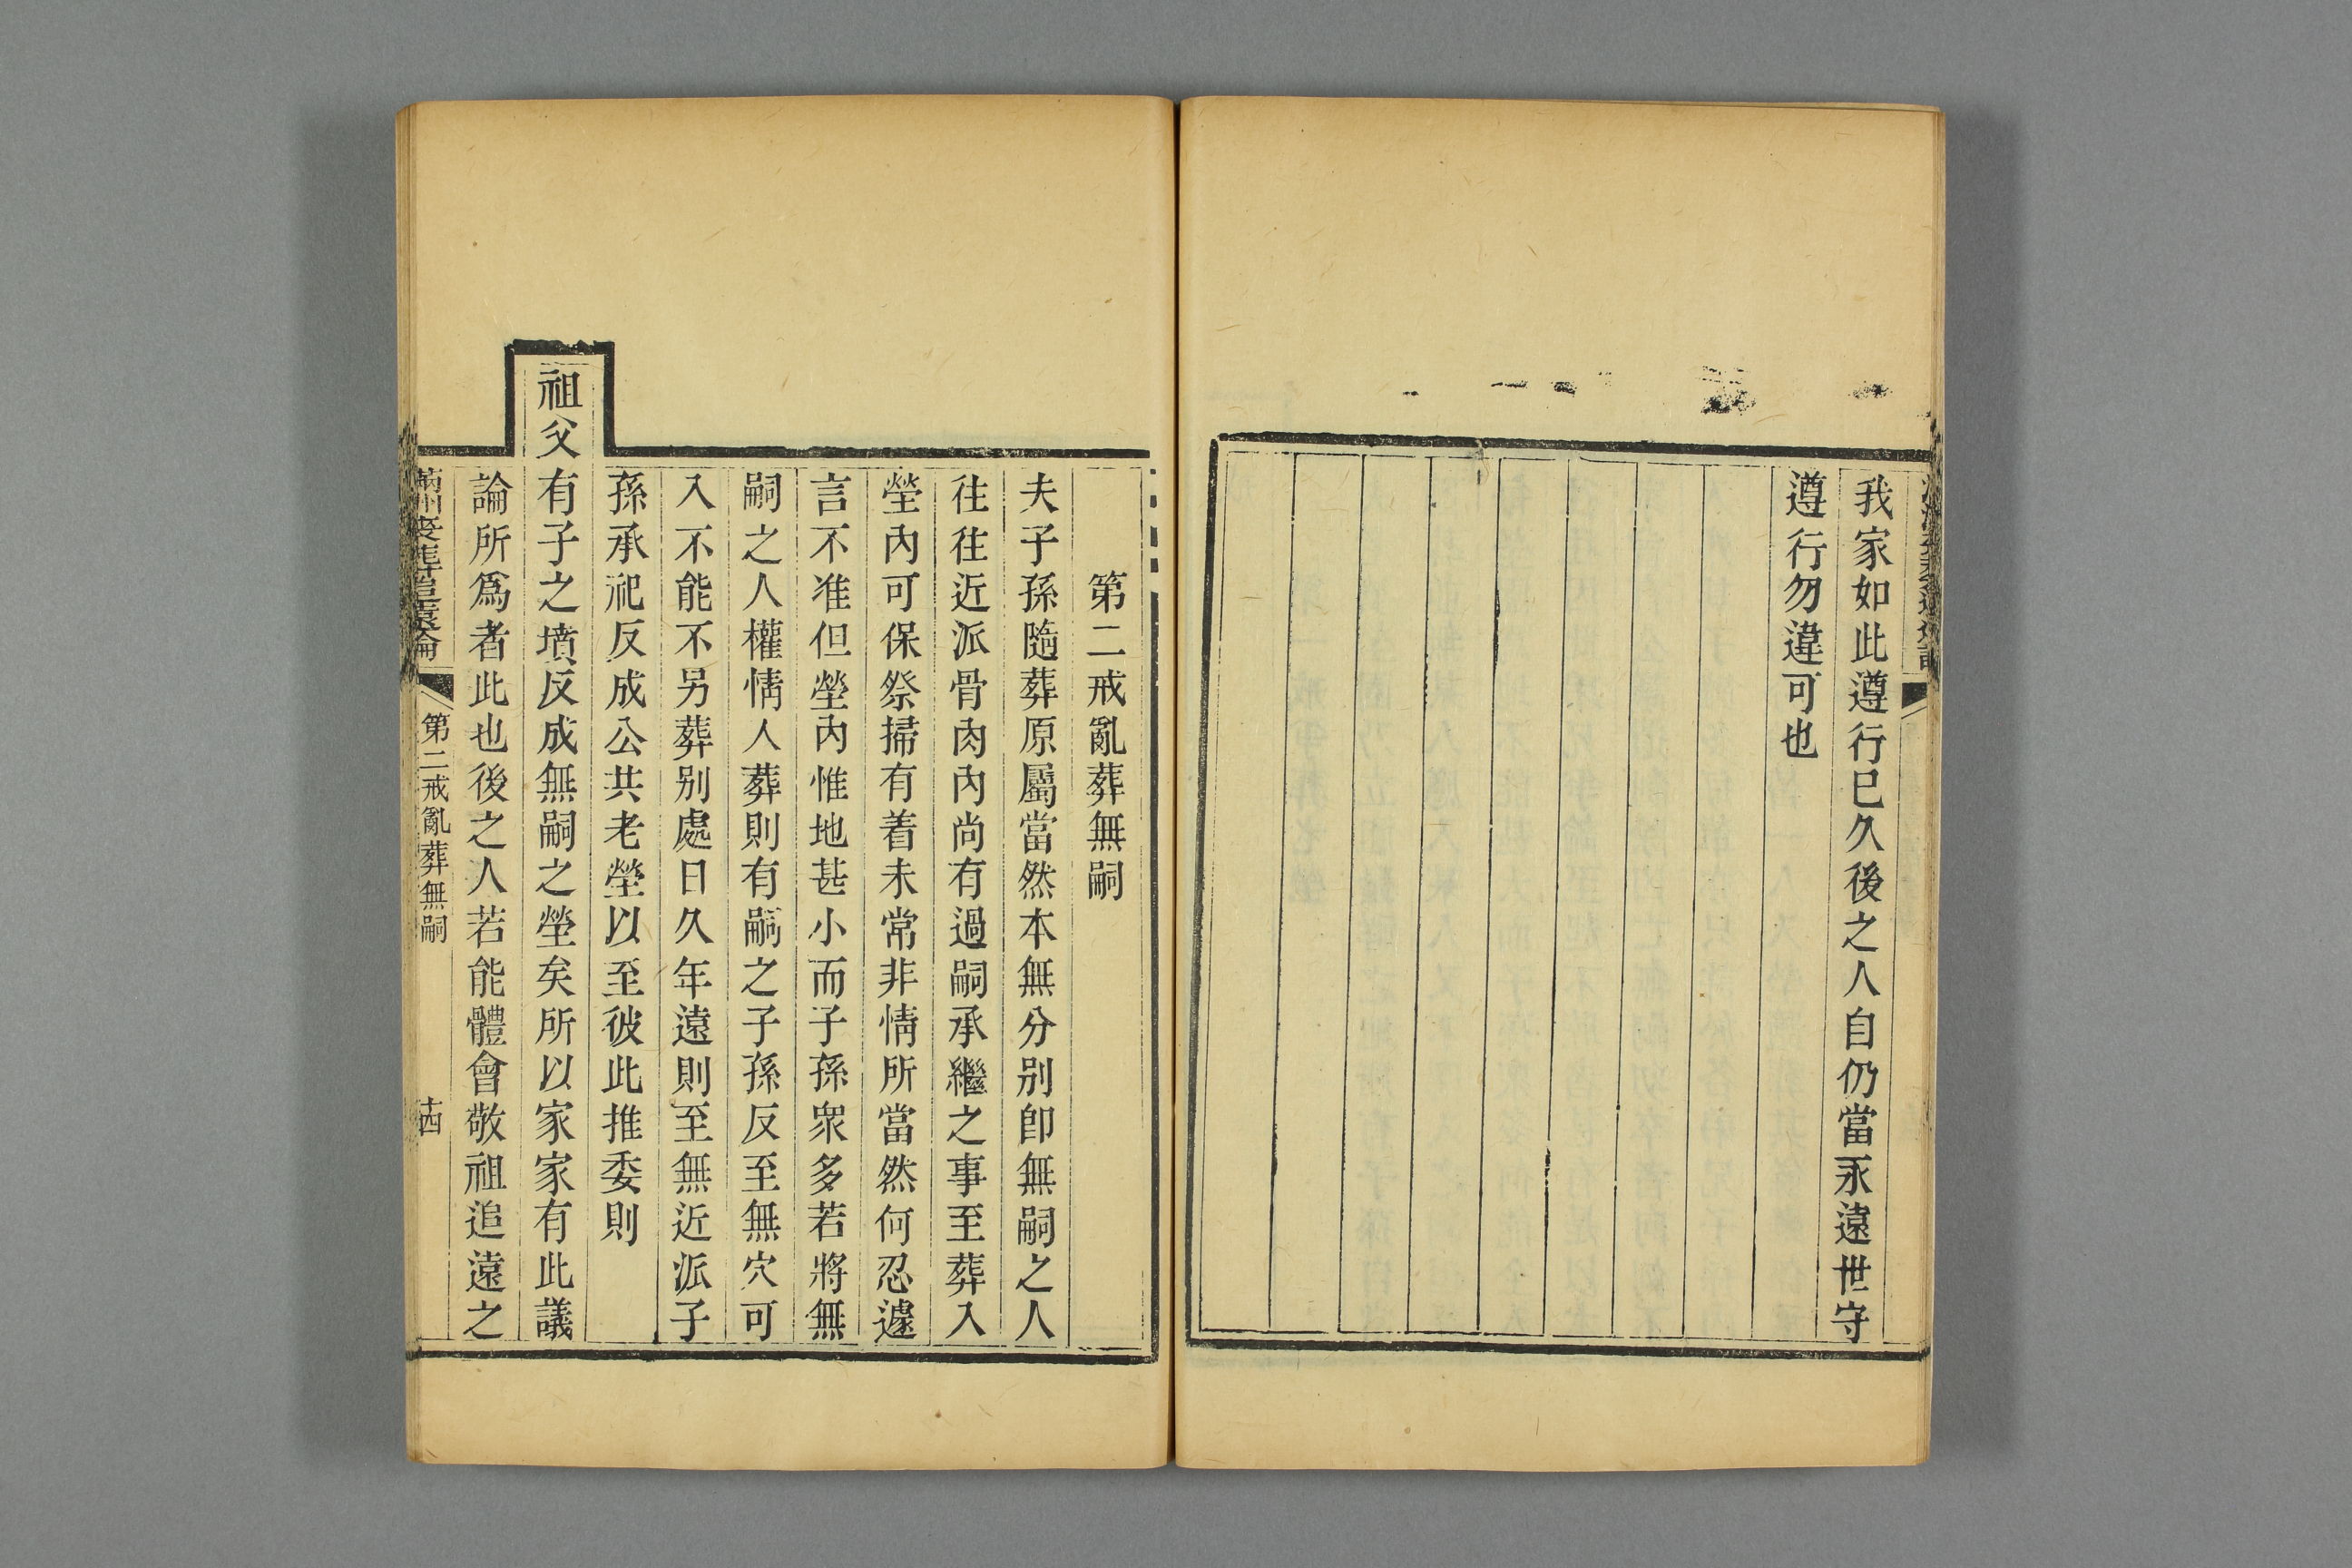 我家如此遵行已久後之人自仍當永遠世守
遵行勿違可也
第二戒亂葬無嗣
夫子孫隨葬原屬當然本無分別卽無嗣之人
往往近派骨肉內尚有過嗣承繼之事至葬入
塋內可保祭掃有着未常非情所當然何忍遽
言不准但塋內惟地甚小而子孫衆多若將無
嗣之人權情人葬則有嗣之子孫反至無穴可
入不能不另葬别處日久年遠則至無近派子
孫承祀反成公共老塋以至彼此推委則
祖父有子之墳反成無嗣之塋矣所以家家有此議
論所爲者此也後之人若能體會敬祖追遠之
第二戒亂葬無嗣
十四